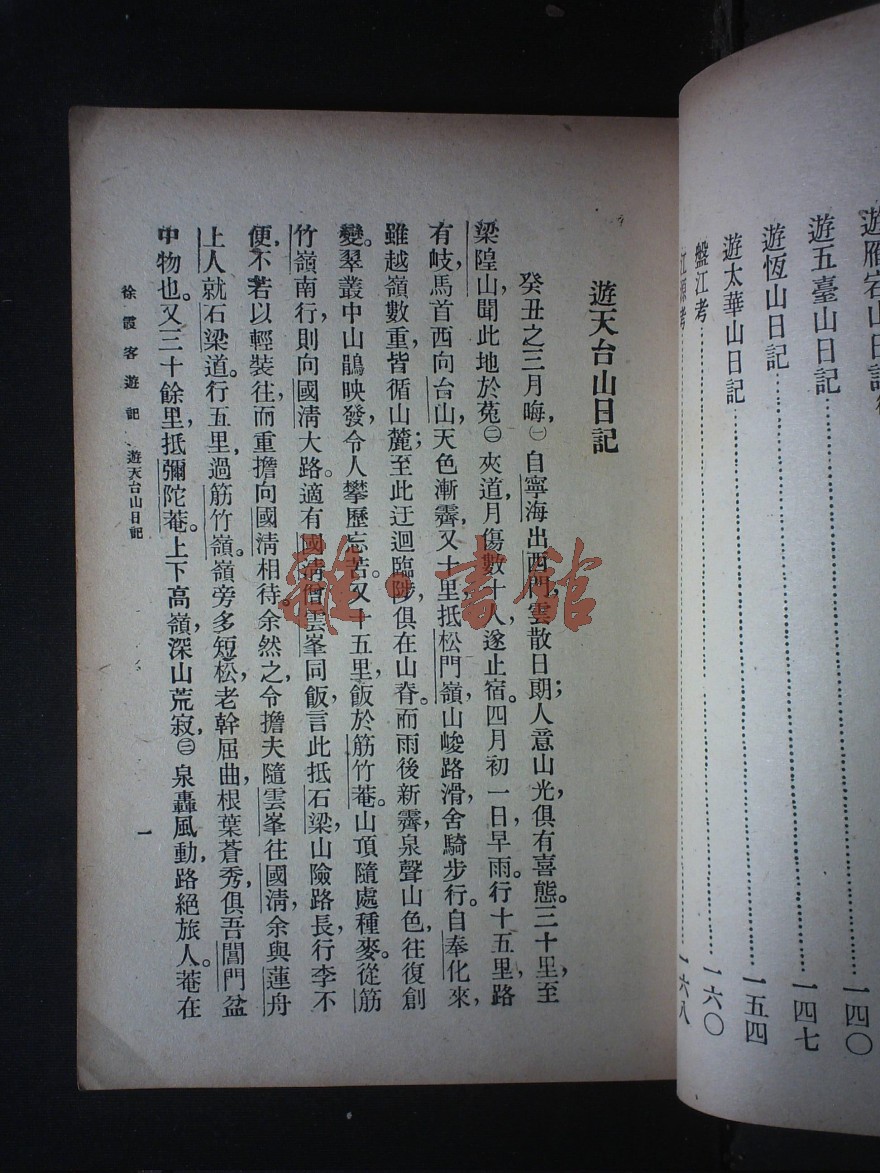 遊雁宕山日記後
遊五臺山日記⋯⋯一四〇
遊恆山日記⋯⋯一四七
遊太華山日記⋯⋯一五四
盤江考⋯⋯一六〇
江源考⋯⋯一六八
遊天台山日記
癸丑之三月晦，㊀自寧海出西門，雲散日朗；人意山光，俱有喜態。三十里至
梁隍山，聞此地於菟㊁夾道，月傷數十人，遂止宿。四月初一日，早雨。行十五里，路
有岐，馬首西向台山，天色漸霽。又十里，抵松門嶺，山峻路滑，舍騎步行。自奉化來，
雖越嶺數重，皆循山麓；至此迂迴臨陟，俱在山脊。而雨後新霽，泉聲山色，往復創
變。翠叢中山鵑映發，令人攀歷忘苦。又十五里，飯於筋竹菴。山頂隨處種麥。從筋
竹嶺南行，則向國清大路。適有國清僧雲峯同飯，言此抵石梁，山險路長，行李不
便，不若以輕裝往，而重擔向國清相待。余然之，令擔夫隨雲峯往國清，余與蓮舟
上人就石梁道。行五里，過筋竹嶺。嶺旁多短松，老幹屈曲，根葉蒼秀，俱吾閶門盆
中物也。又三十餘里，抵彌陀菴。上下高嶺，深山荒寂，㊂泉轟風動，路絕旅人。菴在
徐霞客遊記 遊天台山日記
一
雜·書館